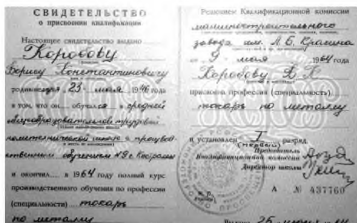 СВИДЕТЕЛЬСТВО
о присвоении квалификации
Настоящее свидетельство выдано
Коробову
Борису Константиновичу
родившемуся 23 июля 1946 года
в том, что он обучался в средней
общеобразовательной трудовой
политехнической школе с производ-
ственным обучением №8
и окончил в 1964 году полный курс
производственного обучения по профессии
(специальности) токарь
по металлу
Решением Квалификационной комиссии
машиностроительного
завода им. Л. Б. Красина
9 июля 1964 года
Коробову Б. К.
присвоена профессия (специальность)
токарь по металлу
и установлен I разряд
(первый)
Председатель
Квалификационной комиссии
Директор школы
А № 437760
25 июня